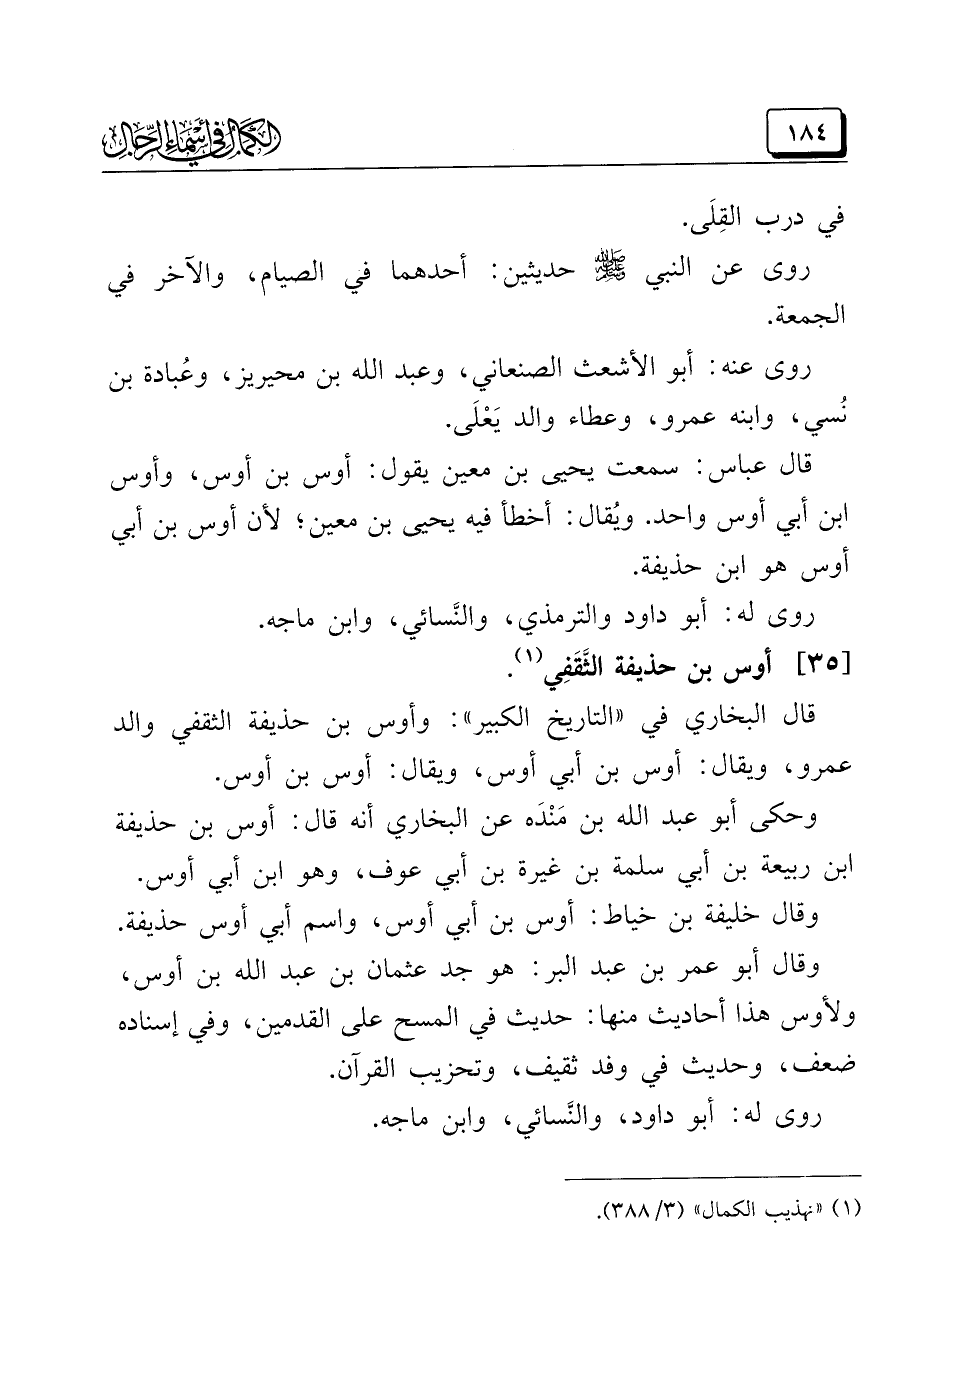 ١٨٤
الكمال في أسماء الرجال
في درب القِلَى.
روى عن النبي ﷺ حديثين: أحدهما في الصيام، والآخر في
الجمعة.
روى عنه: أبو الأشعث الصنعاني، وعبد الله بن محيريز، وعُبادة بن
نُسي، وابنه عمرو، وعطاء والد يَعْلَى.
قال عباس: سمعت يحيى بن معين يقول: أوس بن أوس، وأوس
ابن أبي أوس واحد. ويُقال: أخطأ فيه يحيى بن معين؛ لأن أوس بن أبي
أوس هو ابن حذيفة.
روى له: أبو داود والترمذي، والنَّسائي، وابن ماجه.
[٣٥] أوس بن حذيفة الثَّقَفِي(١).
قال البخاري في «التاريخ الكبير»: وأوس بن حذيفة الثقفي والد
عمرو، ويقال: أوس بن أبي أوس، ويقال: أوس بن أوس.
وحكى أبو عبد الله بن مَنْدَه عن البخاري أنه قال: أوس بن حذيفة
ابن ربيعة بن أبي سلمة بن غيرة بن أبي عوف، وهو ابن أبي أوس.
وقال خليفة بن خياط: أوس بن أبي أوس، واسم أبي أوس حذيفة.
وقال أبو عمر بن عبد البر: هو جد عثمان بن عبد الله بن أوس،
ولأوس هذا أحاديث منها: حديث في المسح على القدمين، وفي إسناده
ضعف، وحديث في وفد ثقيف، وتحزيب القرآن.
روى له: أبو داود، والنَّسائي، وابن ماجه.
(١) «تهذيب الكمال» (٣/ ٣٨٨).